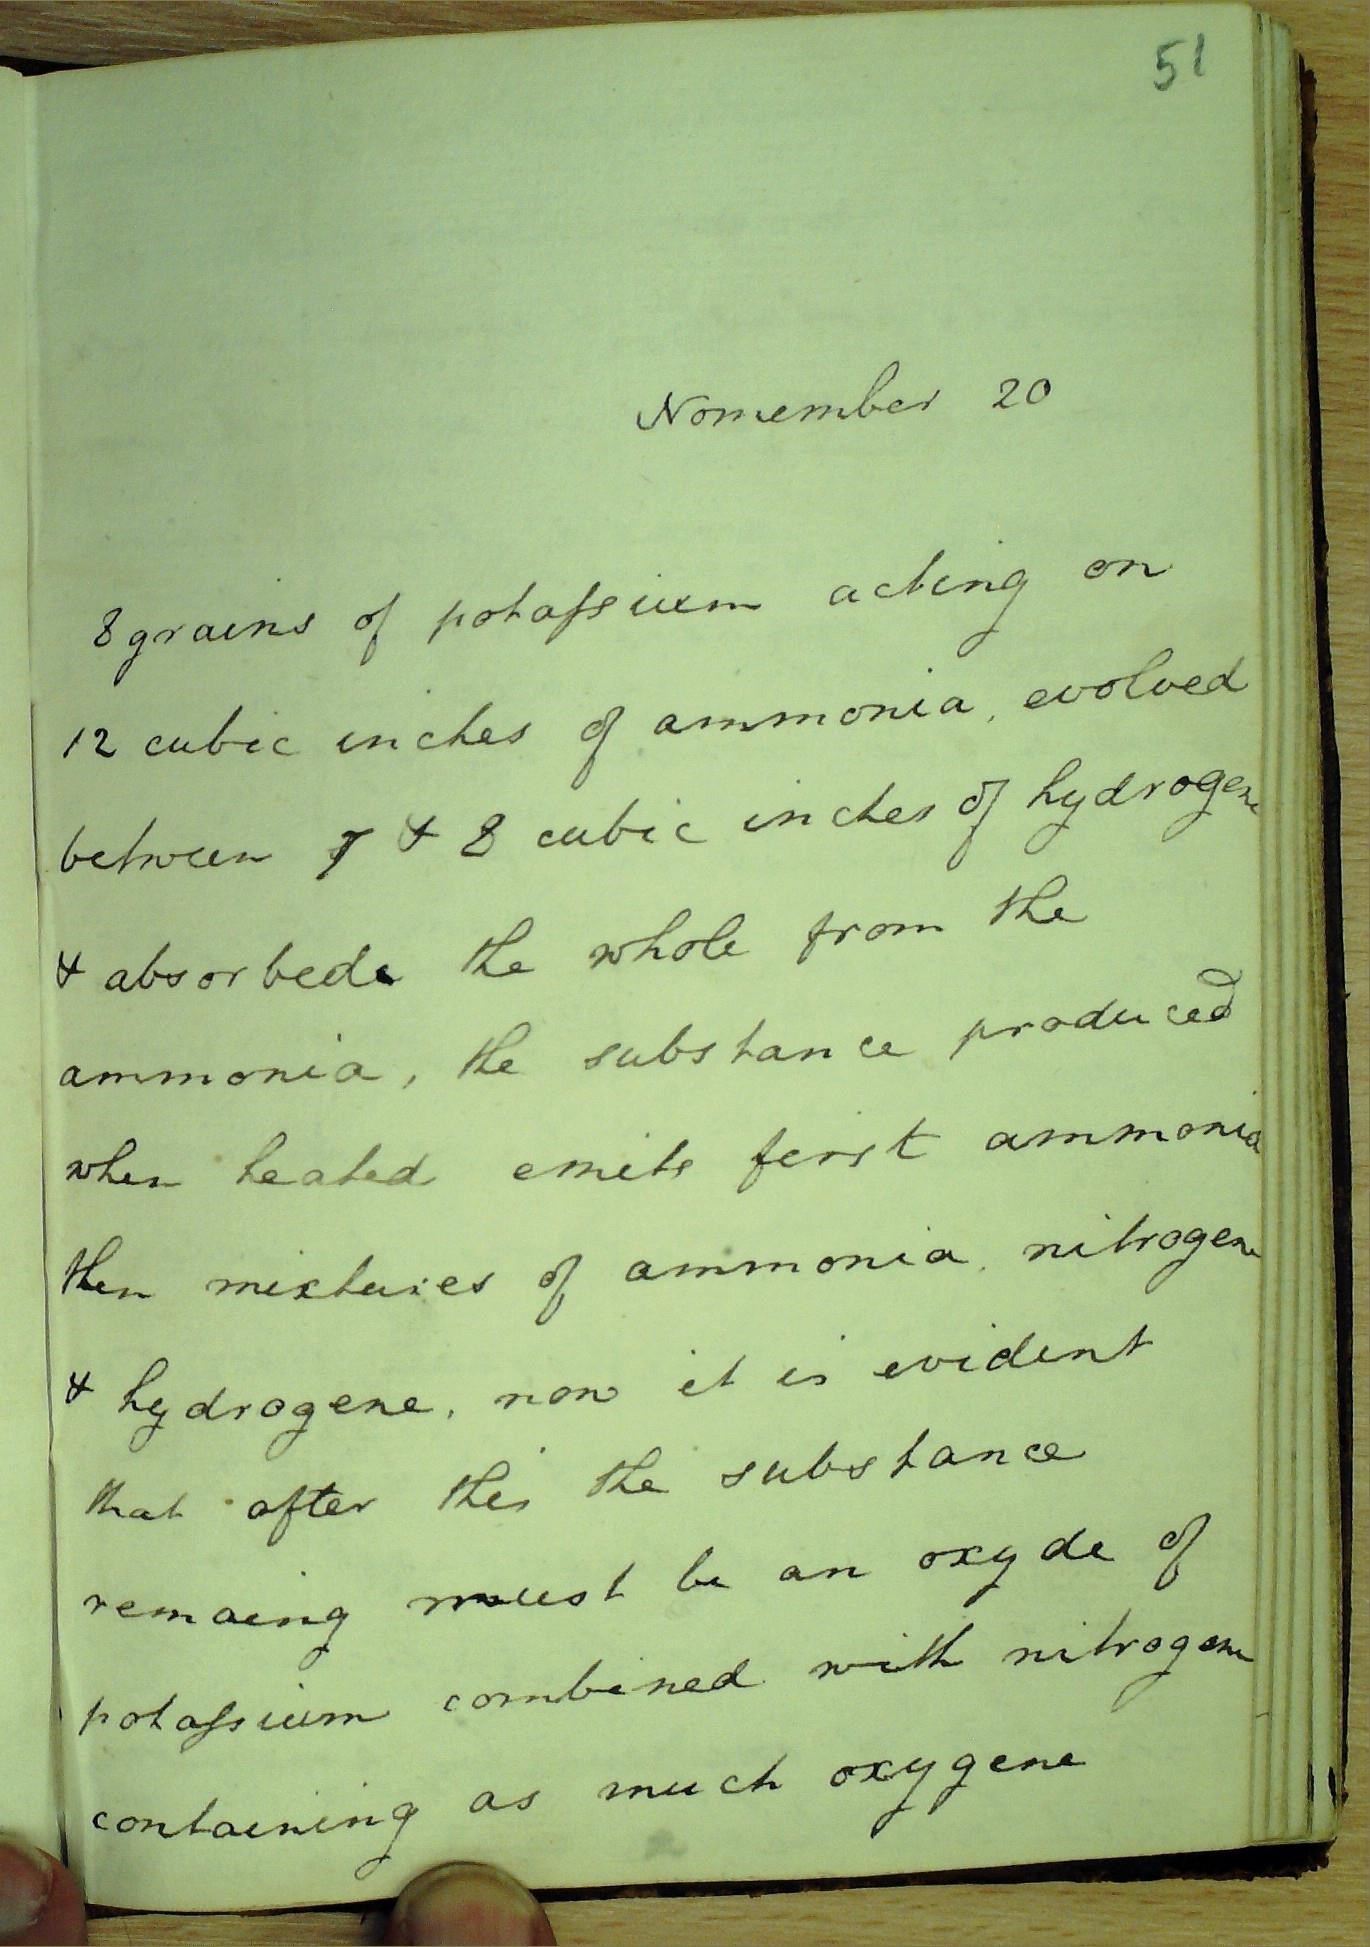 51
Nomember 20
8 grains of potassium acting on
12 cubic inches of ammonia, evolved
between 7 & 8 cubic inches of hydrogene
& absorbede the whole from the
ammonia, the substance produced
when heated emits first ammonia
then mixtures of ammonia, nitrogene
& hydrogene, now it is evident
that after this the substance
remaing must be an oxyde of
potassium combined with nitrogene
containing as much oxygene